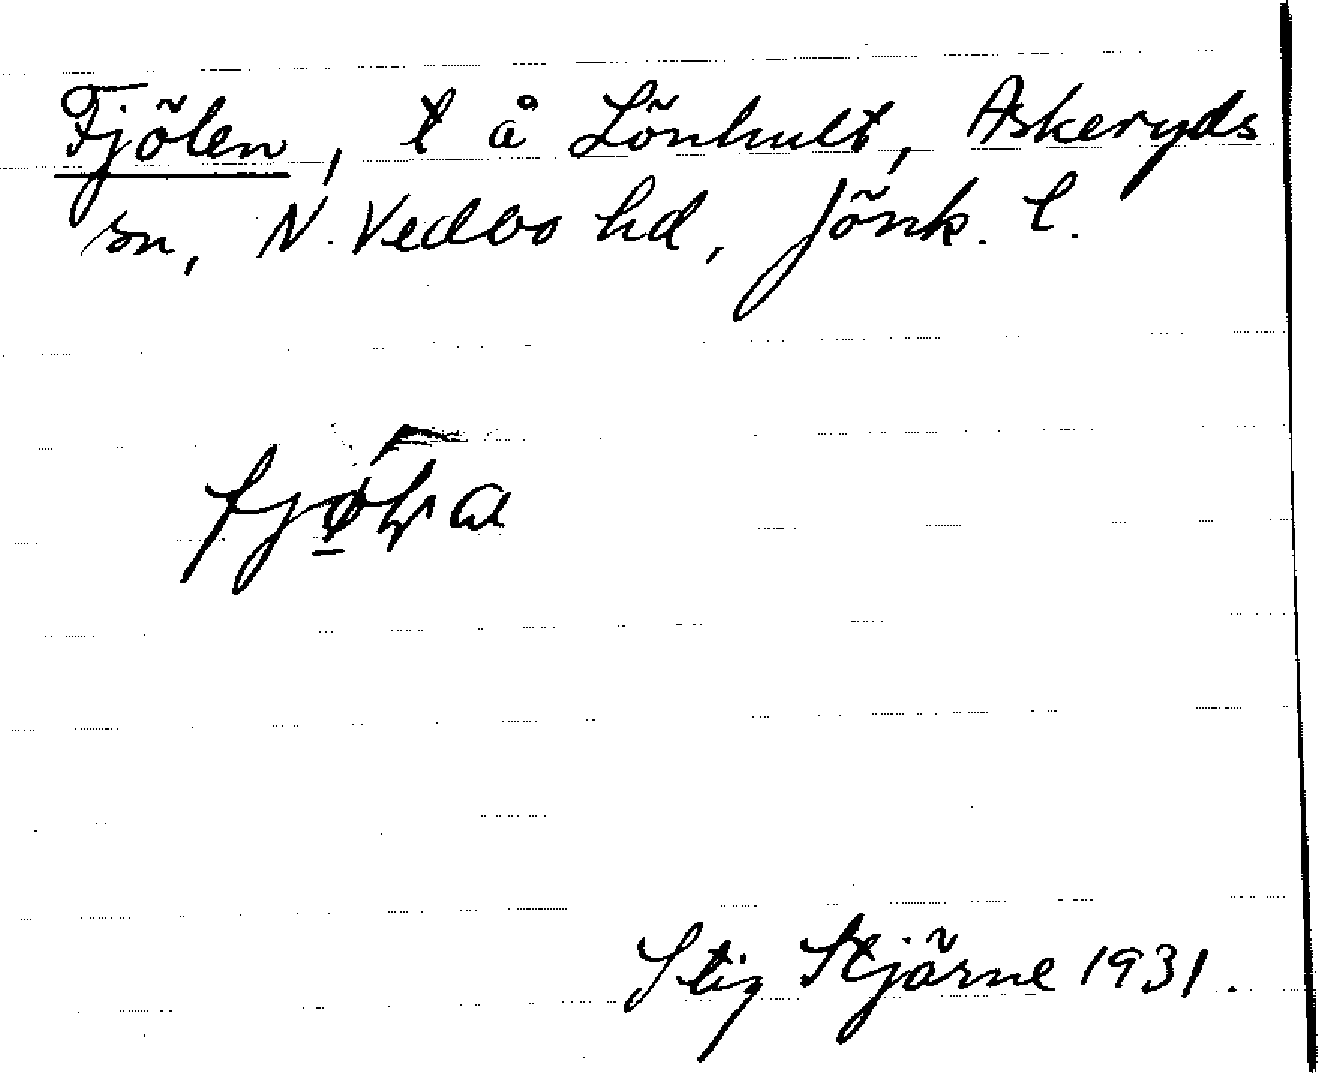 Fjölen, t å Lönhult, Askeryds
sn, N. Vedbo hd, Jönk. l.
Stig Stjärne 1931.